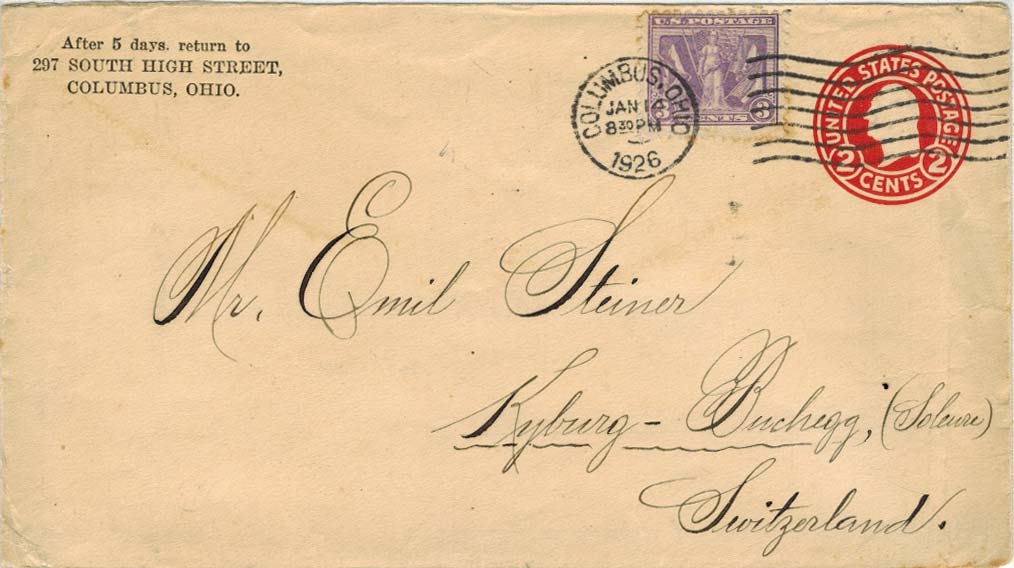 After 5 days. return to
297 SOUTH HIGH STREET,
COLUMBUS, OHIO.
U.S. POSTAGE
3 CENTS 3
COLUMBUS, OHIO
JAN
8 30 PM
1926
UNITED STATES POSTAGE
2 CENTS 2
Mr. Emil Steiner
Kyburg - Buchegg, (Soleure)
Switzerland.